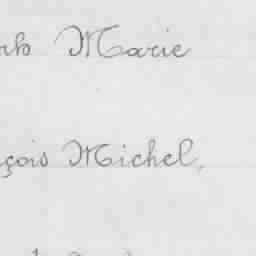 Marie
çois Michel,